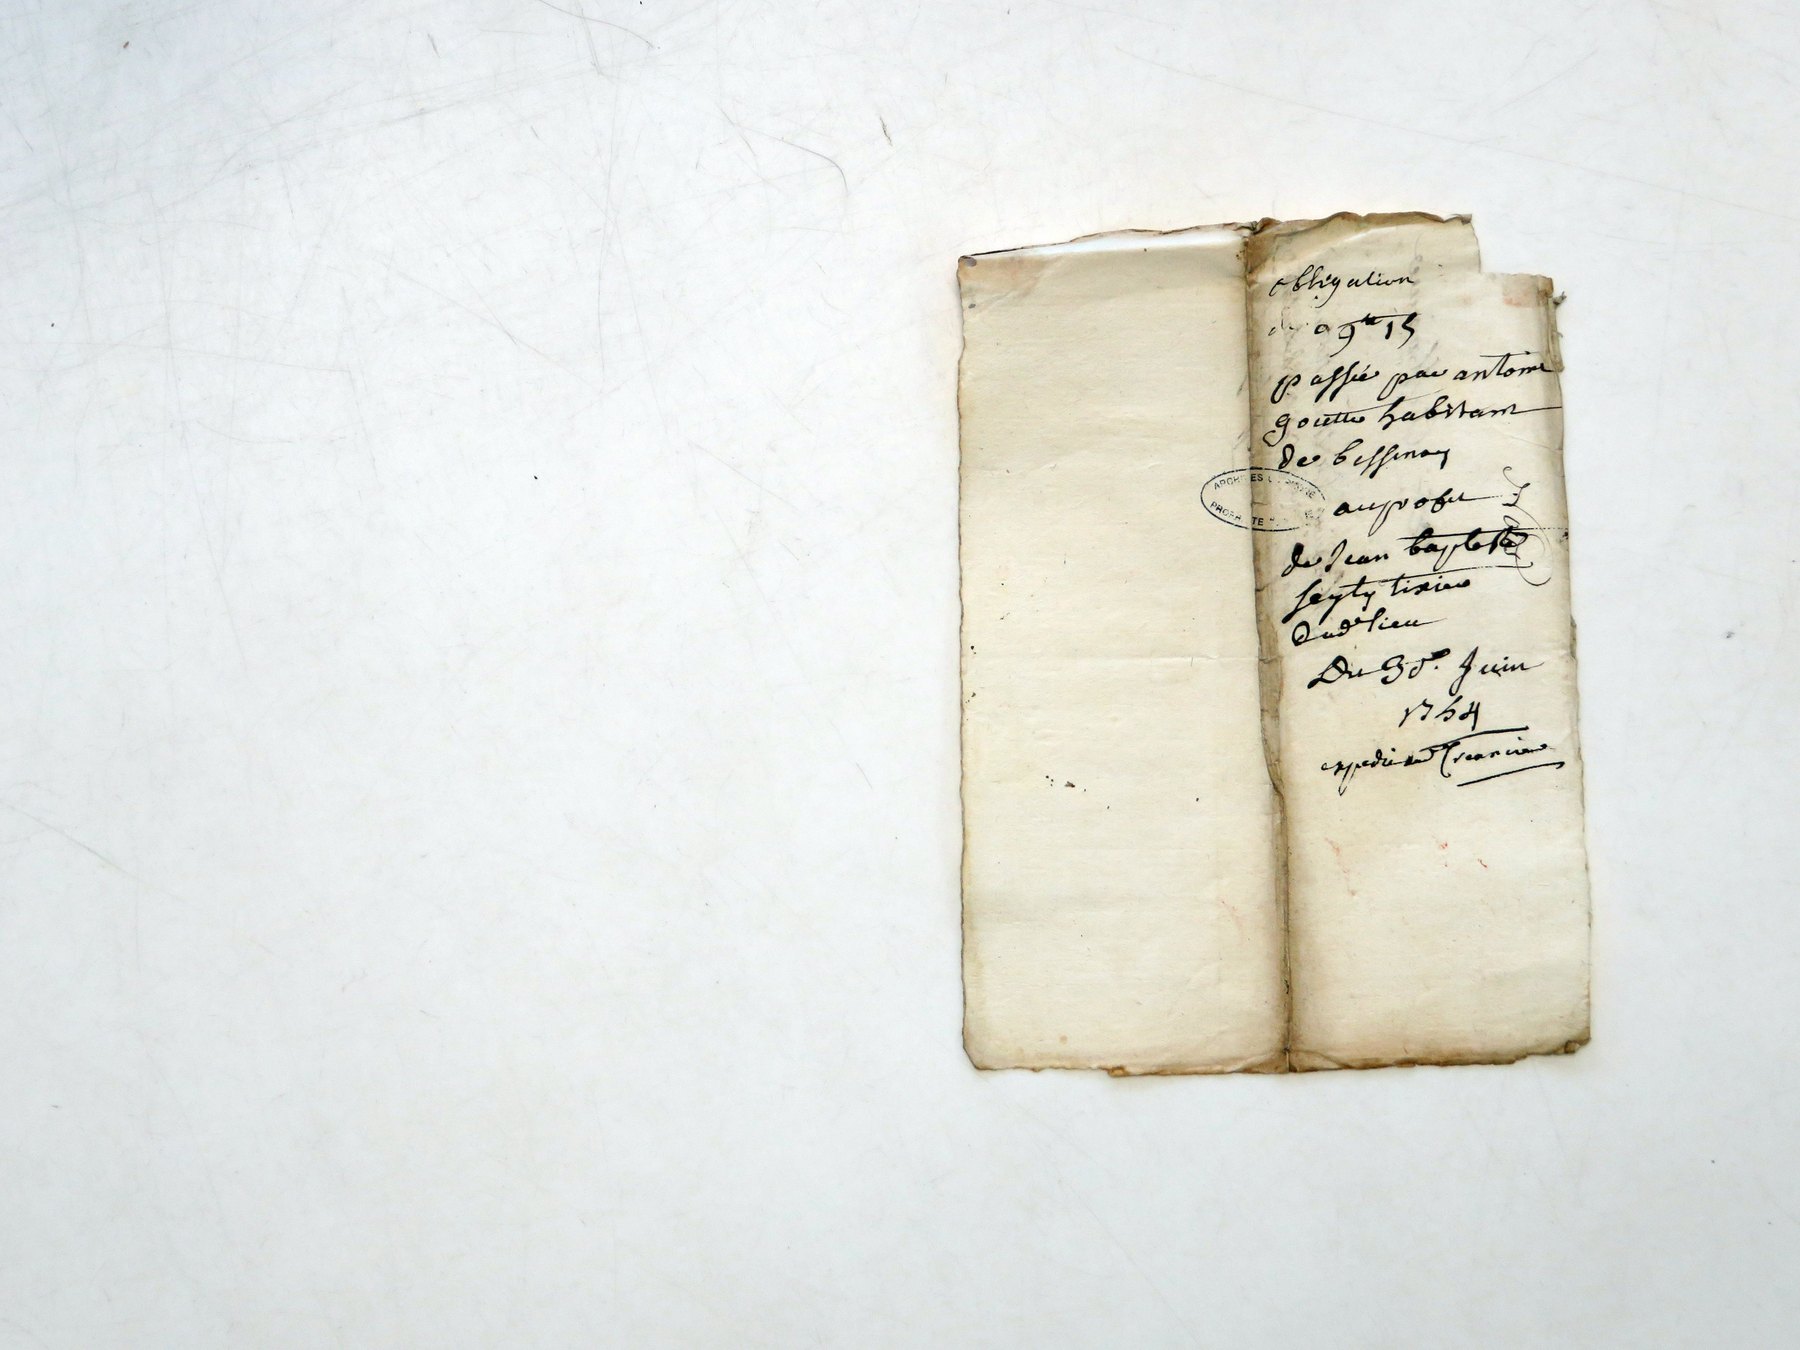 obligation
de
passée par antoine
goutte habitant
de bessenay
au profit
de Jean baptiste
tixier
dud lieu
Du 30e. Juin
1754
expediee
ARCHIVES
PROPRIETE